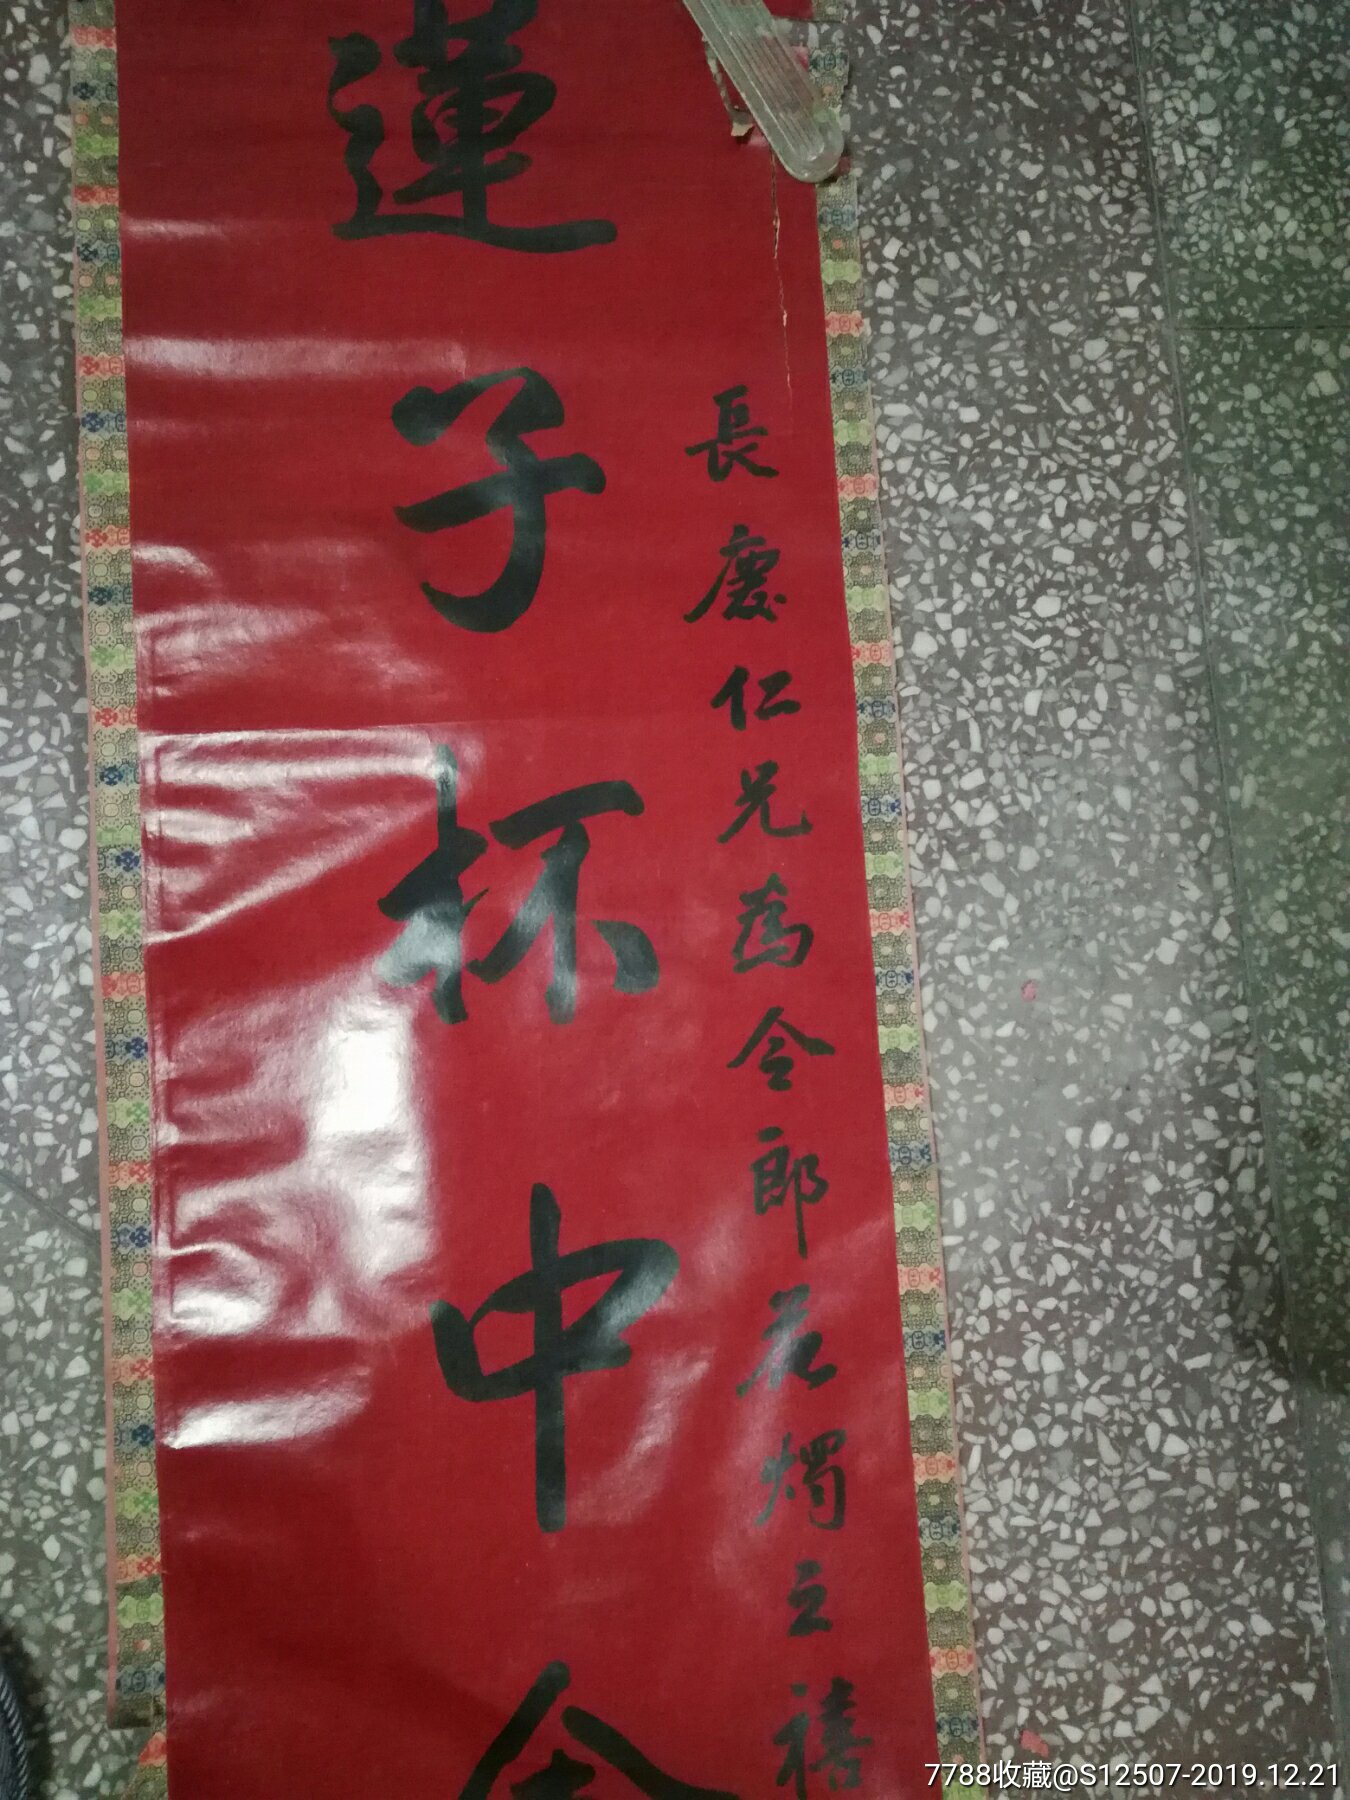 長慶仁兄為令郎花燭之禧
蓮子杯中
7788收藏@S12507-2019.12.21